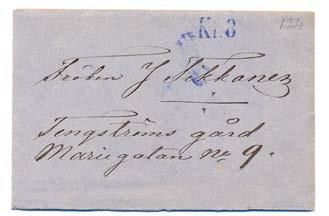 Kl. 8
124
Fröken J Tikkanen
Tengströms gård
Mariegatan No 9.